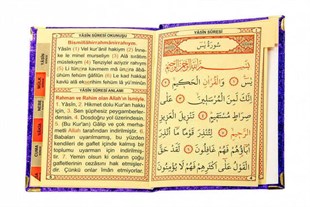 YÂSÎN SÛRESİ OKUNUŞU
Bismillâhirrahmânirrahîm.
Yâsîn (1) Vel kur'ânil hakîm (2) İnne-
ke le minel murselîn (3) Alâ sırâtın
müstekıym (4) Tenzîylel azîyzir rahîym
(5) Li
fehüm gâfilûn (6) Le kad hakkal
kavlü alâ
YÂSÎN SÛRESİ ANLAMI
Rahman ve Rahim olan Allah'ın İsmiyle.
1. Yâsîn, 2. Hikmet dolu Kur'an hakkı
için, 3. Sen şüphesiz peygamberler-
densin. 4. Dosdoğru yol üzerindesin.
5. (Bu Kur'an) Gâlip ve çok merha-
metli Allah tarafından indirilmiştir. 6.
Babaları uyarılmamış, bu yüzden
kendileri de gaflet içinde kalmış bir
toplumu uyarman için indirilmiş-
tir. 7. Yemin olsun ki onların çoğu
gafletlerinin cezasını hak etmişler-
dir. Çünkü onlar îmân etmiyorlar.
YÂSÎN SÛRESİ
سُورَةُ يٰسٓ
بِسْمِ اللّٰهِ الرَّحْمٰنِ الرَّحِيمِ
يٰسٓ ۝ وَالْقُرْاٰنِ الْحَكِيمِ ۝
اِنَّكَ لَمِنَ الْمُرْسَلِينَ ۝ عَلٰى
صِرَاطٍ مُسْتَقِيمٍ ۝ تَنْزِيلَ الْعَزِيزِ
الرَّحِيمِ ۝ لِتُنْذِرَ قَوْمًا مَٓا اُنْذِرَ
اٰبَٓاؤُ۬هُمْ فَهُمْ غَافِلُونَ ۝ لَقَدْ حَقَّ
الْقَوْلُ عَلٰٓى اَكْثَرِهِمْ فَهُمْ لَا يُؤْمِنُونَ